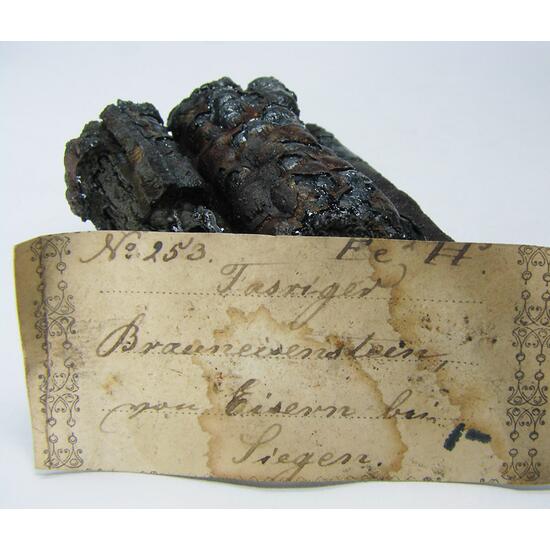 No. 253. Fe² H³.
Fasriger
Brauneisenstein,
von Eisern bei
Siegen.